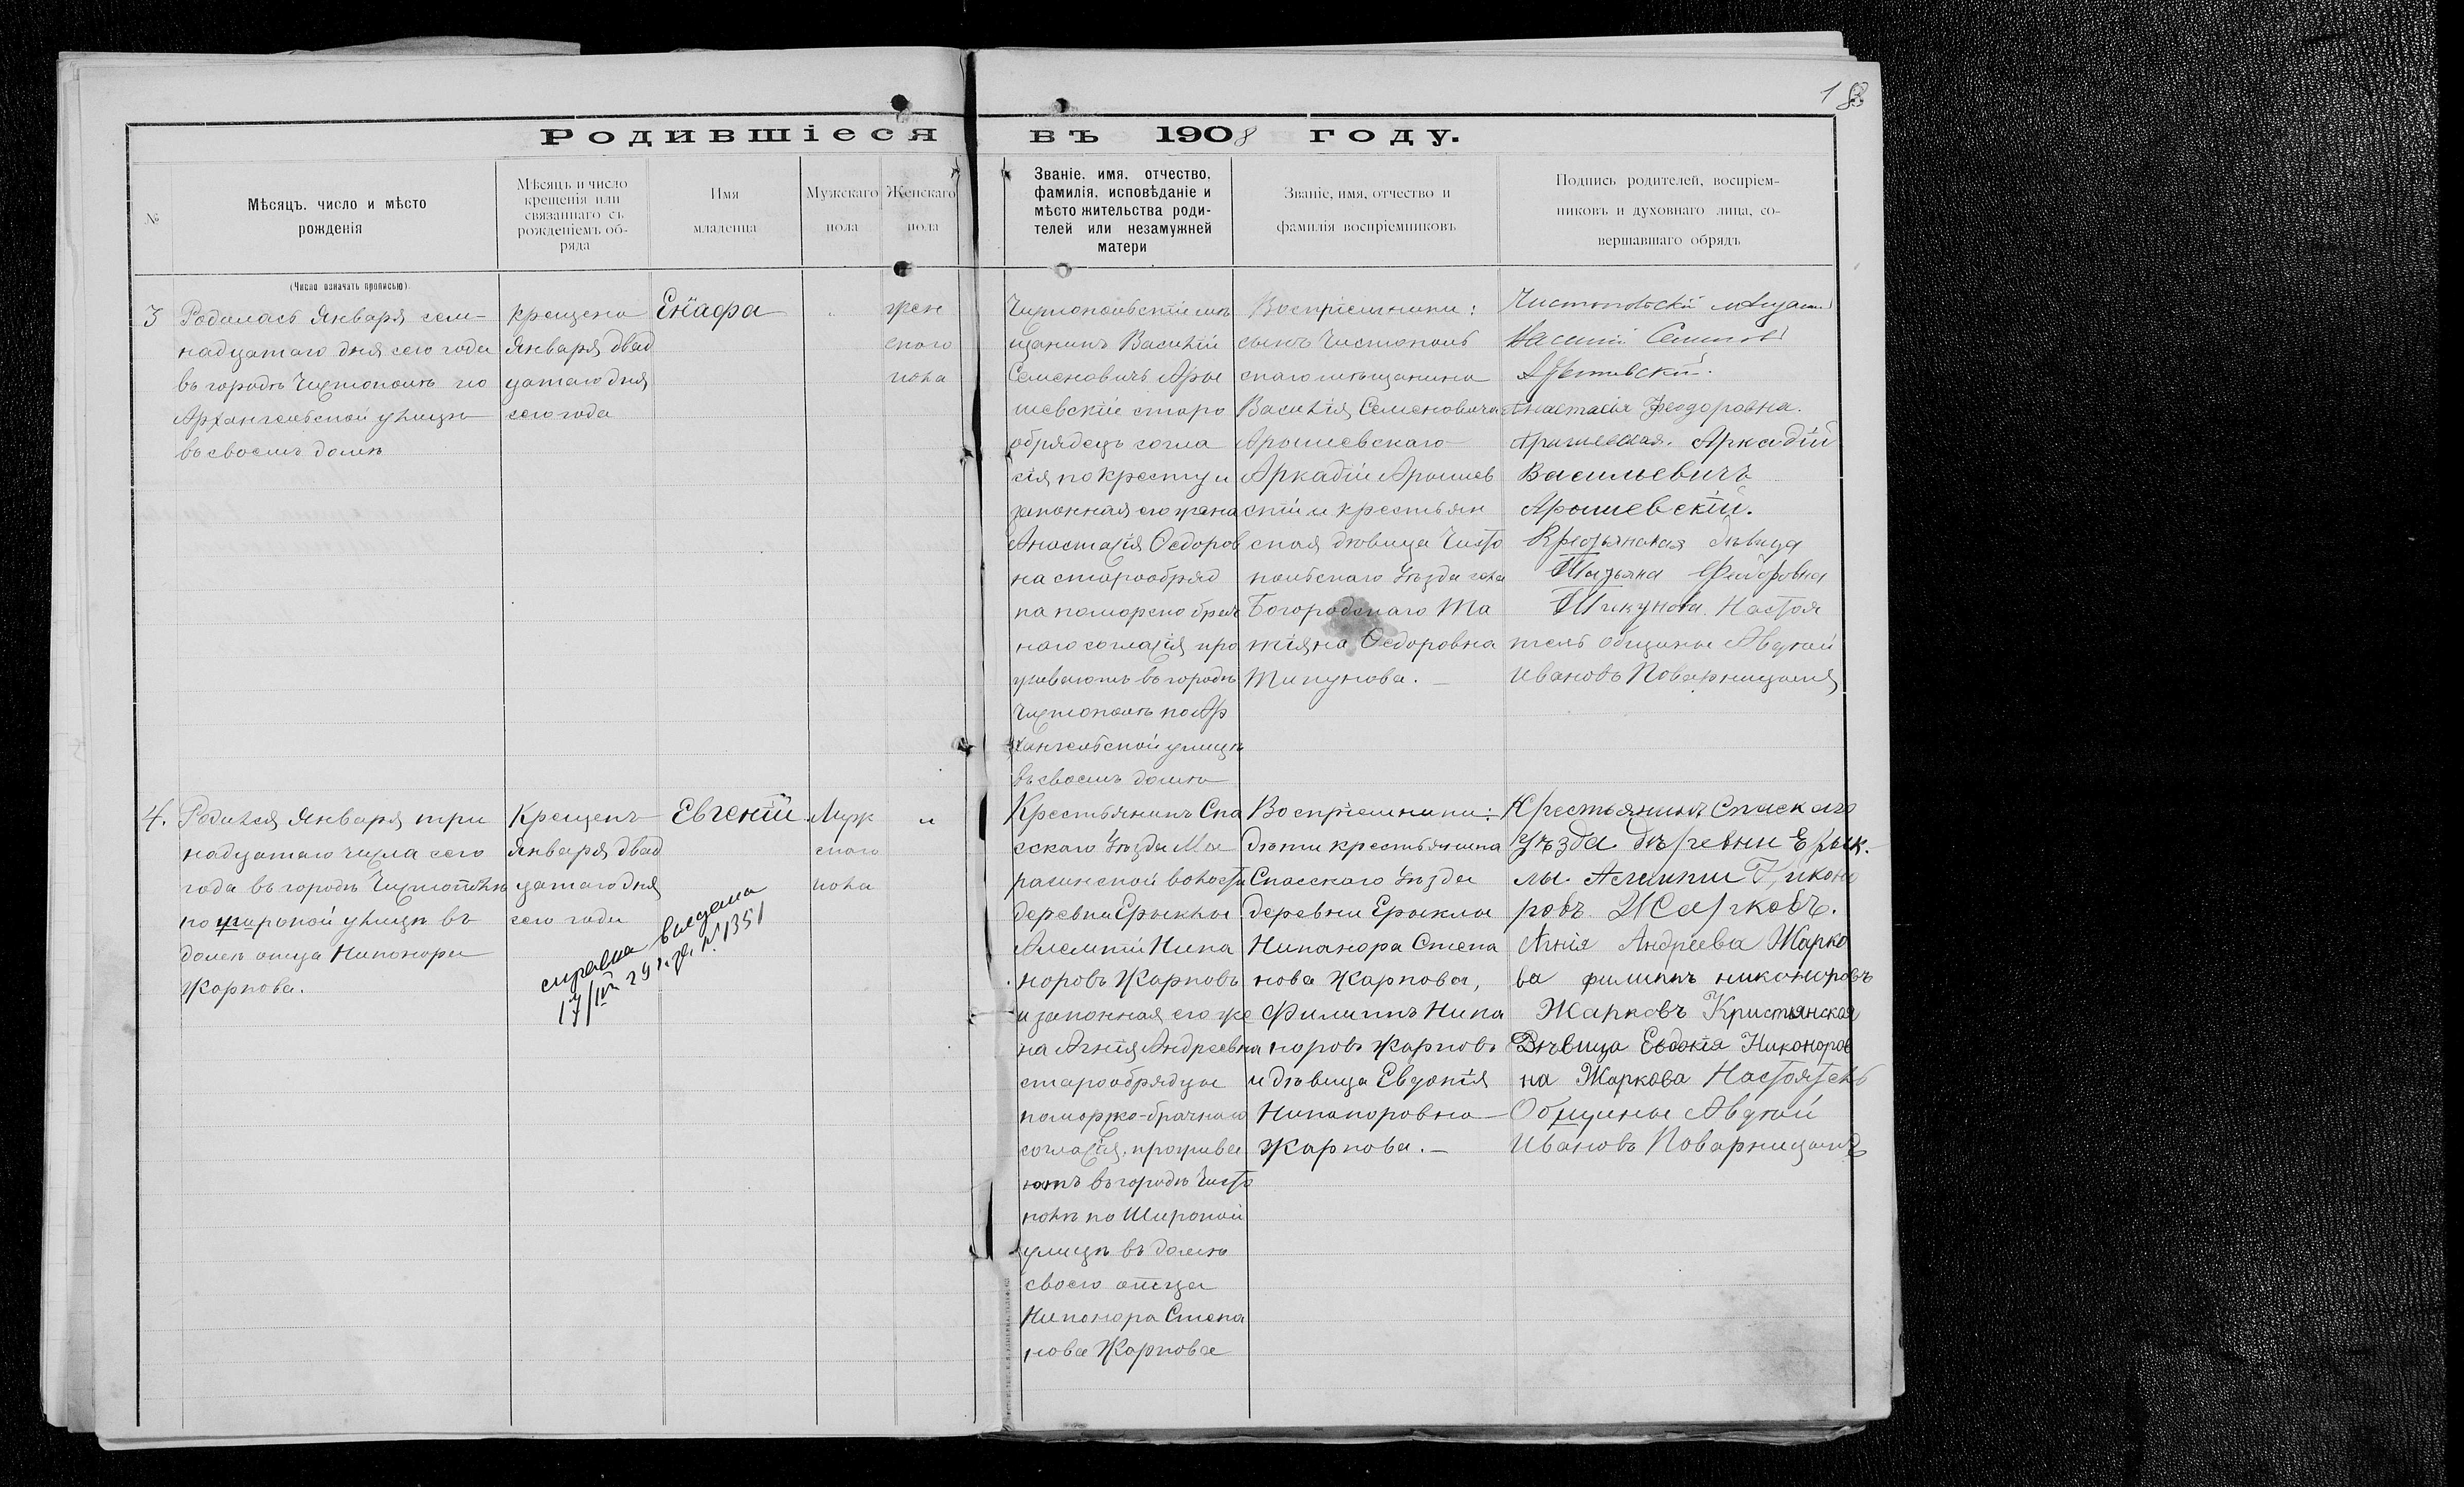 Родившіеся въ 1908 году.
№
Мѣсяцъ, число и мѣсто
рожденія
Мѣсяцъ и число
крещенія или
связаннаго съ
рожденіемъ об-
ряда
Имя
младенца
Мужскаго
пола
Женскаго
пола
Званіе, имя, отчество,
фамилія, исповѣданіе и
мѣсто жительства роди-
телей или незамужней
матери
Званіе, имя, отчество и
фамилія воспріемниковъ
Подпись родителей, воспріем-
никовъ и духовнаго лица, со-
вершавшаго обрядъ
(Число означать прописью)
3
Родилась Января сем-
надцатаго дня сего года
въ городѣ Чистополѣ по
Архангельской улицѣ
въ своемъ домѣ
крещена
Января двад
цатаго дня
сего года
Енафа
жен
скаго
пола
Чистопольскій мѣ
щанинъ Василій
Семеновичъ Ары
шевскій старо
обрядецъ согла
сія по кресту и
законная его жена
Анастасія Ѳедоров
на старообряд
ка поморско брач
наго согласія про
живаютъ въ городѣ
Чистополѣ по Ар
хангельской улицѣ
въ своемъ домѣ
Воспріемники:
сынъ Чистополь
скаго мѣщанина
Василія Семеновича
Арышевскаго
Аркадій Арышев
скій и крестьян
ская дѣвица Чисто
польскаго Уѣзда села
Богородскаго Та
тіяна Ѳедоровна
Тикунова. —
Чистопольскій мѣщанин
Василий Семенов
Арышевский.
Анастасія Феодоровна.
Арышевская. Аркадій
Васильевичъ
Арышевскій.
Крестьянская дѣвица
Татьяна Федоровна
Тикунова. Настоя
тель общины Авдкий
Ивановъ Поварницынъ
4.
Родился Января три
надцатаго числа сего
года въ городѣ Чистополѣ
по широкой улицѣ въ
домѣ отца Никонора
Жаркова.
Крещенъ
Января двад
цатаго дня
сего года
Евгеній
Муж
скаго
пола
"
справка выдана
17/IV 29 г. № 1351
Крестьянинъ Спа
сскаго Уѣзда Ма
расинской волости
деревни Ерыклы
Алемпій Ника
норовъ Жарковъ
и законная его же
на Агнія Андреевна
старообрядцы
поморско-брачнаго
согласія, прожива
ютъ въ городѣ Чисто
полѣ по Широкой
улицѣ въ домѣ
своего отца
Никонора Степа
нова Жаркова
Воспріемники:
дѣти крестьянина
Спасскаго Уѣзда
деревни Ерыклы
Никанора Степа
нова Жаркова,
Филиппъ Ника
норовъ Жарковъ
и дѣвица Евдокія
Никаноровна
Жаркова. —
Крестьянинъ Спаскаго
Уѣзда Дѣревни Ерык-
лы. Алимпи Никоно
ровъ Жарковъ.
Агнія Андреева Жарко
ва филиппъ никоноровъ
Жарковъ Кристьянская
Дѣвица Евдокія Никоноров
на Жаркова Настоятель
Общины Авдкий
Ивановъ Поварницынъ